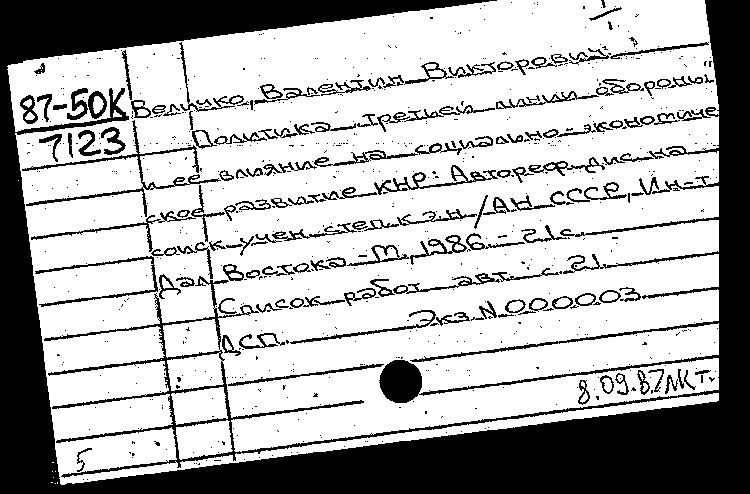 87-50К
7123
Величко, Валентин Викторович.
Политика „третьей линии обороны"
и ее влияние на социально-экономиче
ское развитие КНР: Автореф. дис. на
соиск. учен. степ. к.э.н. / АН СССР, Ин-т
Дал. Востока. - М., 1986. - 21 с.
Список работ авт.: с. 21.
ДСП. Экз. N 000003
8.09.87
5